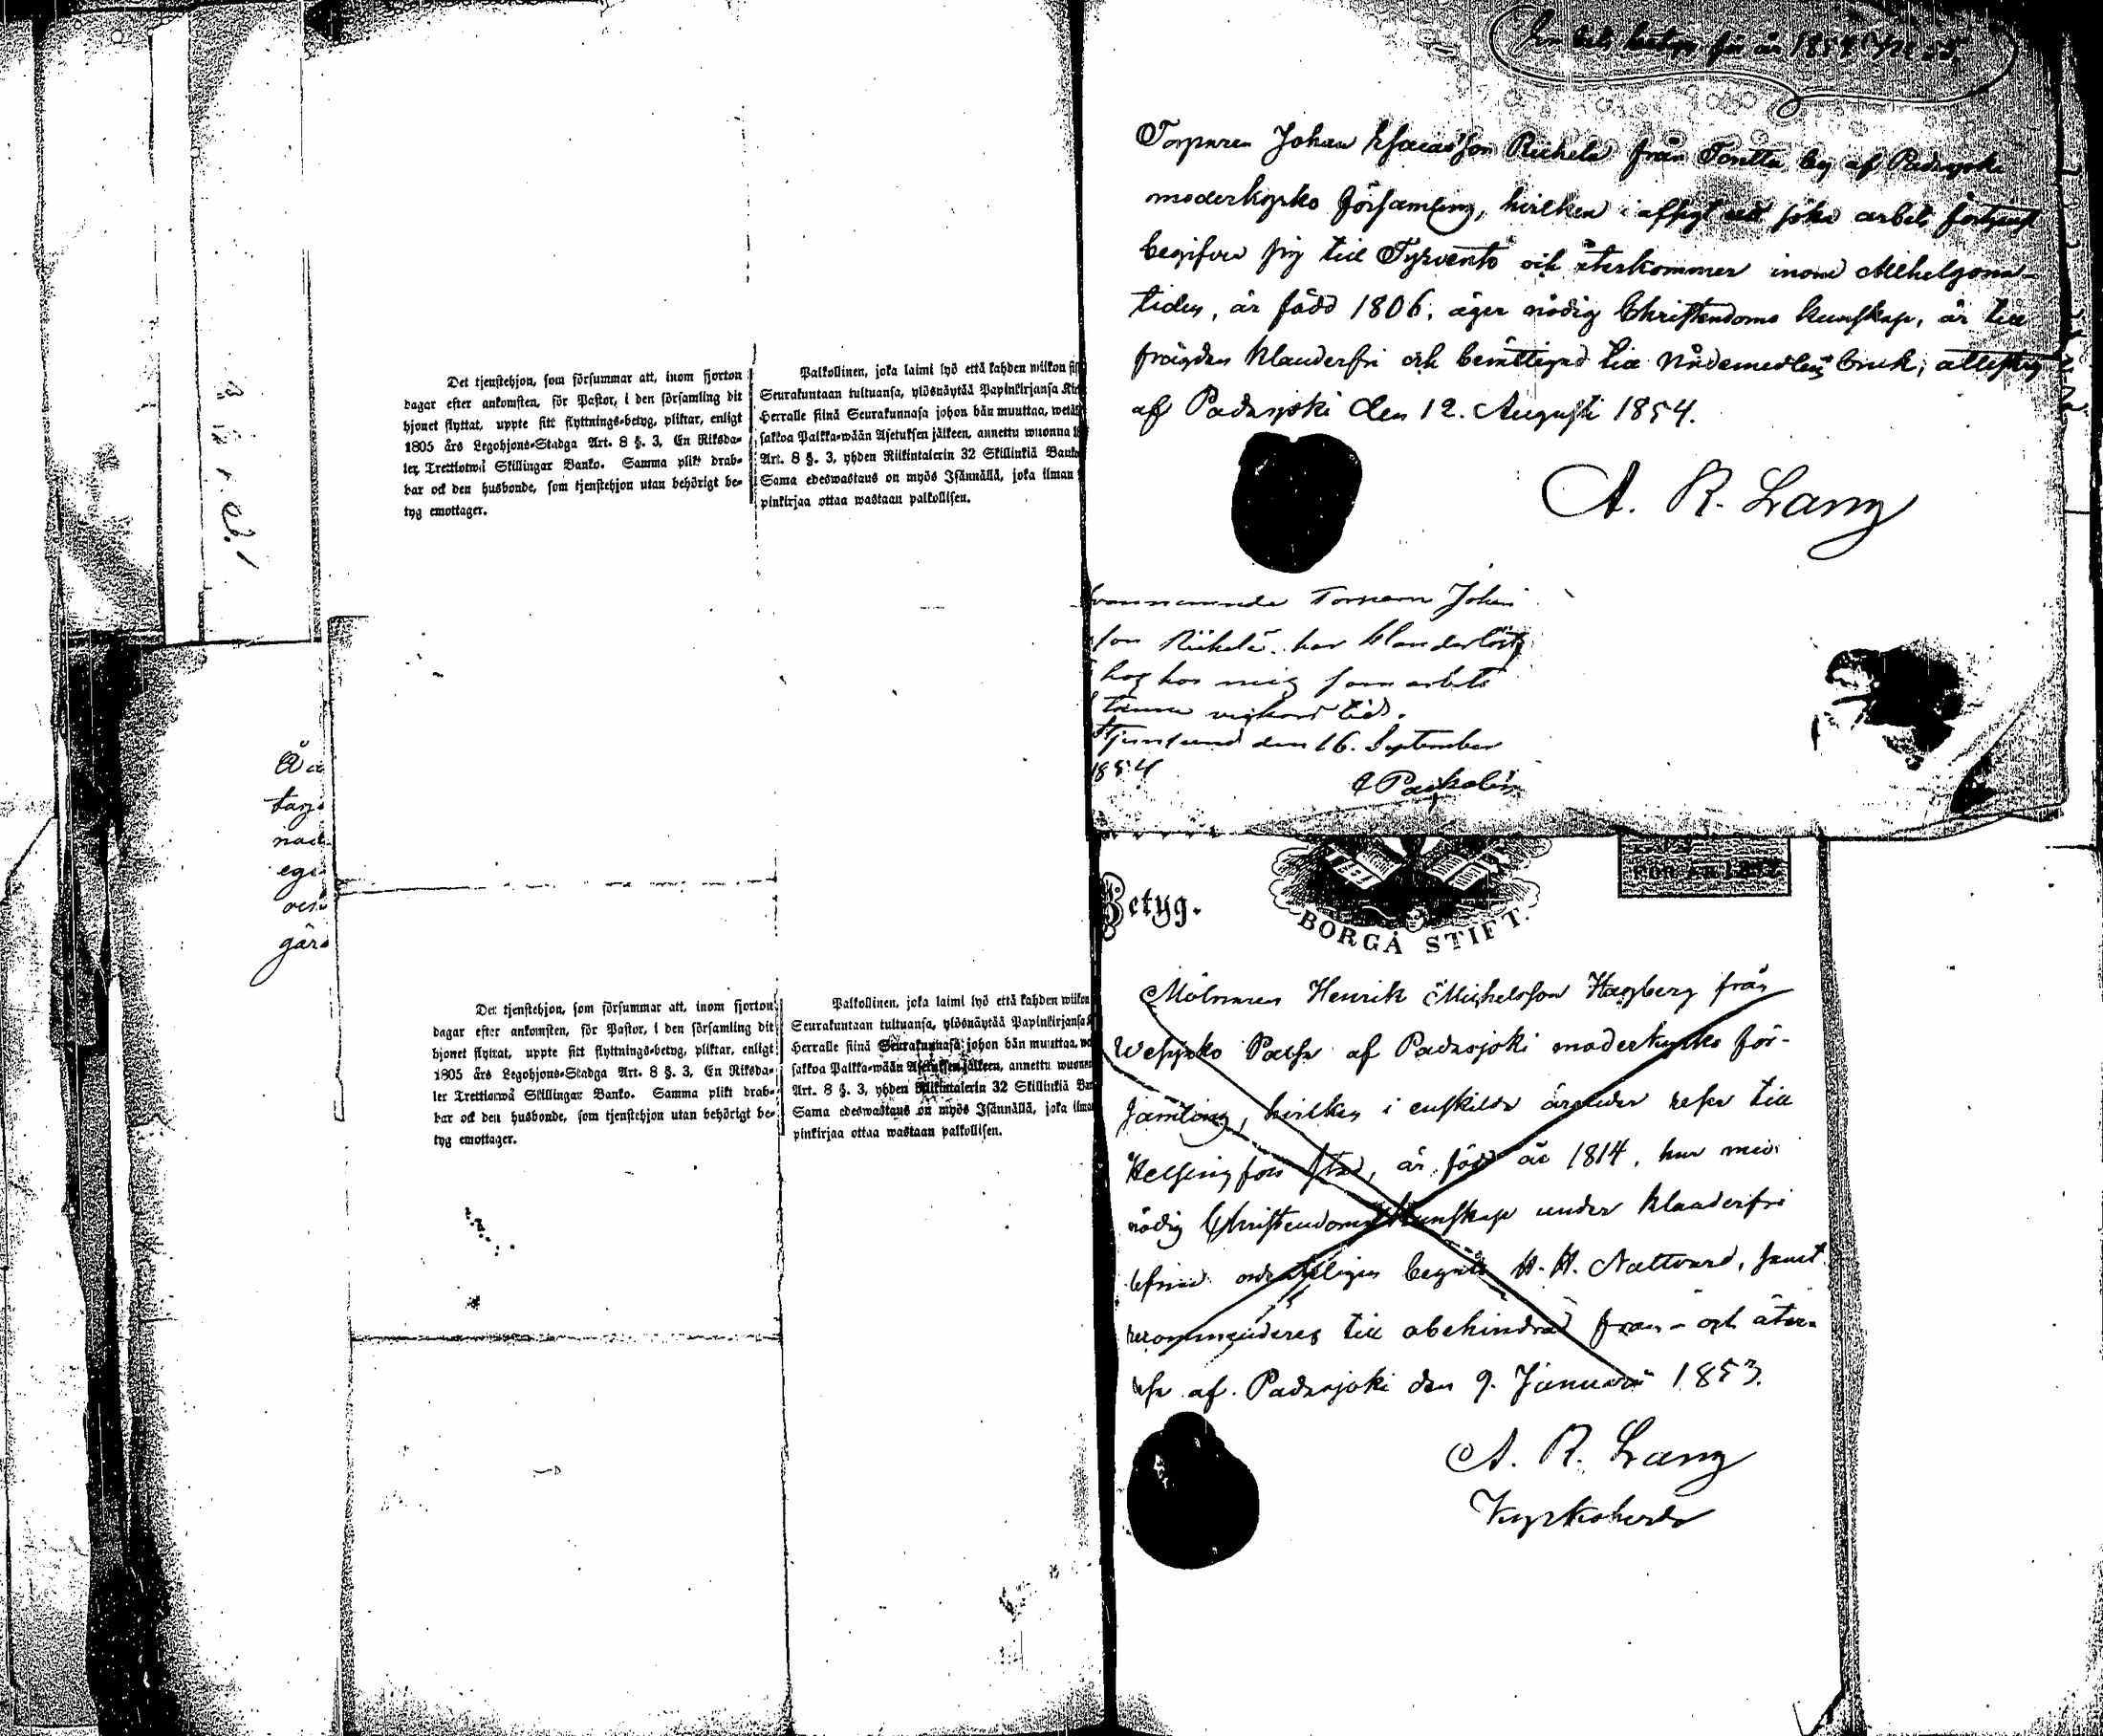 Det tjenstehjon, som försummar att, inom fjorton
dagar efter ankomsten, för Pastor, i den församling dit
hjonet flyttat, uppte sitt flyttnings-betyg, pliktar, enligt
1805 års Legohjons-Stadga Art. 8 §. 3, En Riksda-
ler Trettiotwå Skillingar Banko. Samma plikt drab-
bar ock den husbonde, som tjenstehjon utan behörigt be-
tyg emottager.
Palkollinen, joka laimi lyö että kahden wiikon
Seurakuntaan tultuansa, ylösnäytää Papinkirjansa
Herralle siinä Seurakunnasa johon hän muuttaa,
sakkoa Palkka-wään Asetuksen jälkeen, annettu wuonna
Art. 8 §. 3, yhden Riikintalerin 32 Skillinkiä Banko
Sama edeswastaus on myös Isännällä, joka ilman
pinkirjaa ottaa wastaan palkollisen.
Det tjenstehjon, som försummar att, inom fjorton
dagar efter ankomsten, för Pastor, i den församling dit
hjonet flyttat, uppte sitt flyttnings-betyg, pliktar, enligt
1805 års Legohjons-Stadga Art. 8 §. 3, En Riksda-
ler Trettiotwå Skillingar Banko. Samma plikt drab-
bar ock den husbonde, som tjenstehjon utan behörigt be-
tyg emottager.
Palkollinen, joka laimi lyö että kahden wiikon
Seurakuntaan tultuansa, ylösnäytää Papinkirjansa
Herralle siinä Seurakunnasa johon hän muuttaa,
sakkoa Palkka-wään Asetuksen jälkeen, annettu
Art. 8 §. 3, yhden Riikintalerin 32 Skillinkiä
Sama edeswastaus on myös Isännällä, joka
pinkirjaa ottaa wastaan palkollisen.
för år 1854
Torparen Johan Esaiasson från by af Padasjoki
moderkyrko församling, hvilken i afsigt att söka arbets förtjenst
begifver sig till Tyrvento och återkommer inom Alhelgona-
tiden, är född 1806, äger nödig Christendoms kunskap, är till
frägden klanderfri och berättigad till Nådemedlens bruk; attesteras
af Padasjoki den 12. Augusti 1854.
A. R. Lang
Torparen Johan
son har klanderlöst
hos mig som arbets
tid.
den 16. September
1854
Betyg.
BORGÅ STIFT.
FÖR ÅR
Mölnaren Henrik Michelsson Hagberg från
af Padasjoki moderkyrko för-
samling, hvilken i enskilda ärender reser till
Helsingfors stad, är född år 1814, har med
nödig Christendoms kunskap under klanderfri
begått H. H. Nattvard, samt
recommenderes till obehindrad fram- och åter-
resa af Padasjoki den 9. Januarii 1853.
A. R. Lang
Kyrkoherde